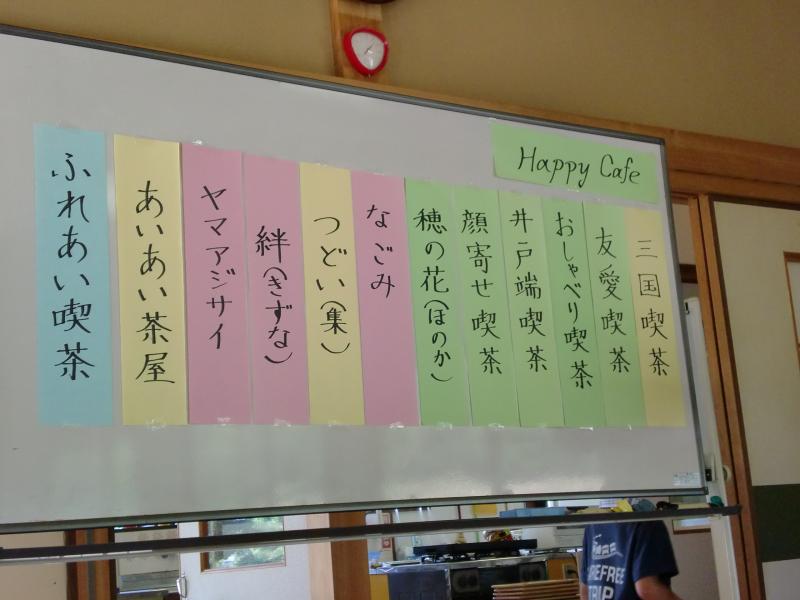 Happy Cafe
三国喫茶
友愛喫茶
おしゃべり喫茶
井戸端喫茶
顔寄せ喫茶
穂の花(ほのか)
なごみ
つどい(集)
絆(きずな)
ヤマアジサイ
あいあい茶屋
ふれあい喫茶
CAREFREE
TRIP